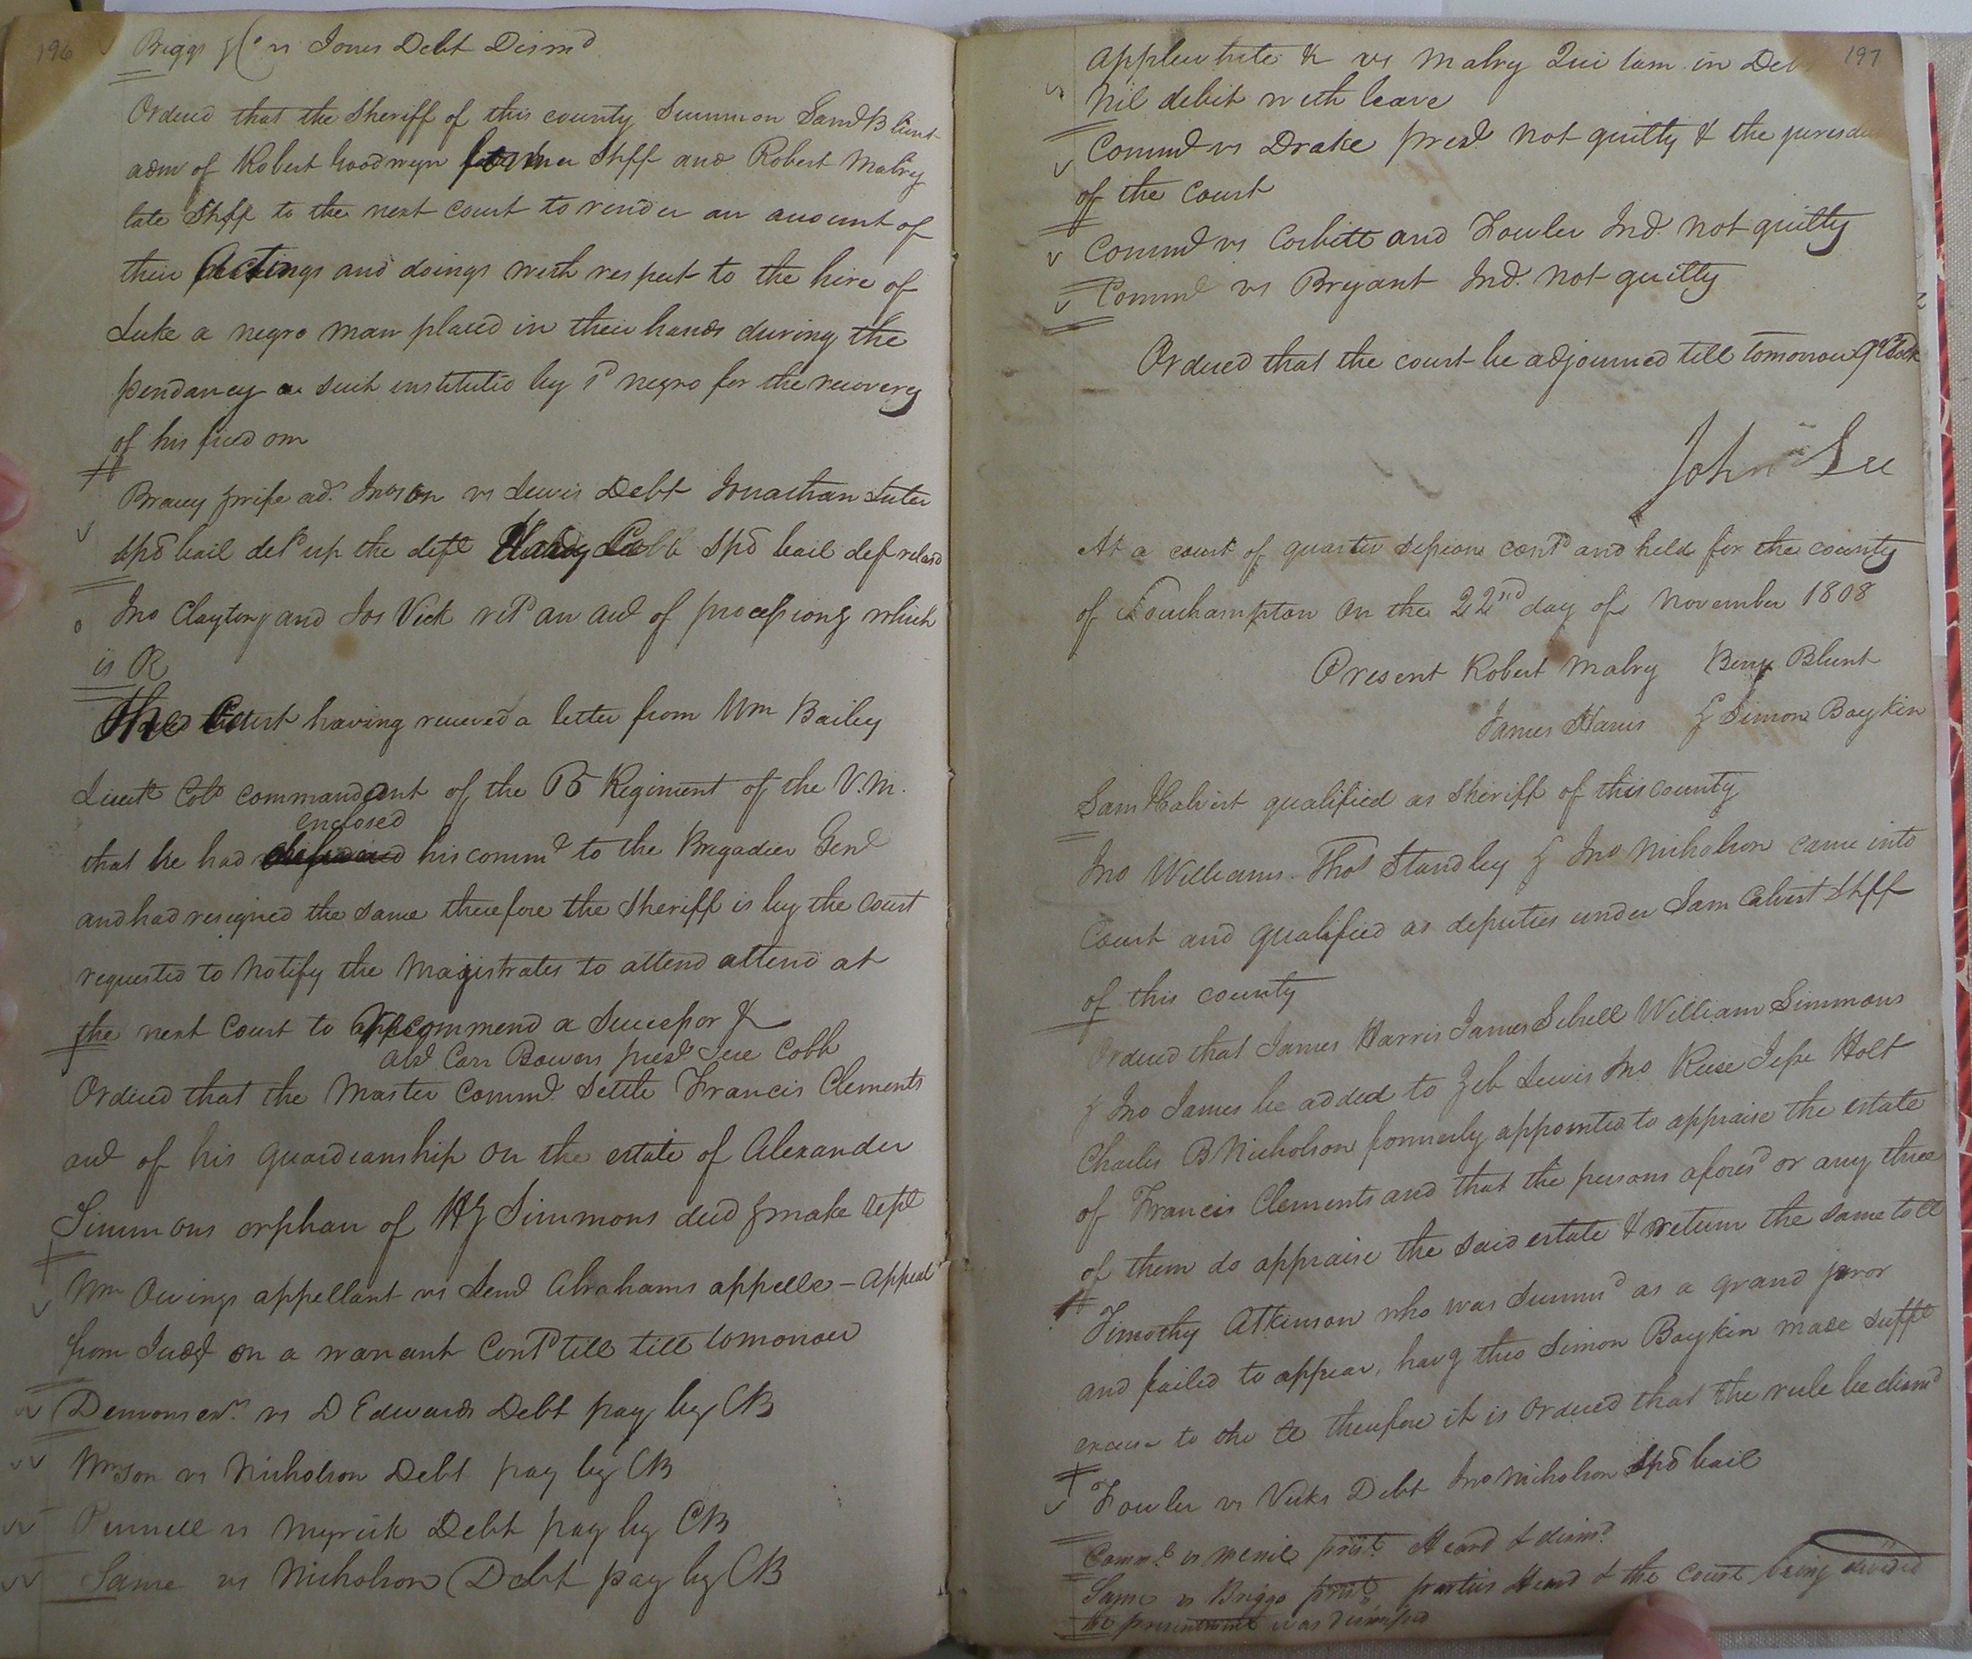 196
Briggs & Co vs Jones Debt Dismd
Ordered that the Sheriff of this county Summon Saml Blunt
admr of Robert Goodwyn former Shff and Robert Mabry
late Shff to the next Court to render an account of
their Actings and doings with respect to the hire of
Luke a negro man placed in their hands during the
pendancy a suit institutid by sd negro for the recovery
of his freedom
Bracey & wife ad. vs Lewis Debt Jonathan Luter
spd bail deld up the deft Hardy Cobb spd bail def relasd
Jno Clayton and Jos Vick retd an acct of processiong which
is OR
The Court having received a letter from Wm Bailey
Lieut Colo commandant of the Regiment of the V.M.
that he had enclosed his commn to the Brigadier Genl
and had resigned the same therefore the Sheriff is by the Court
requested to Notify the Magistrates to attend attend at
the next Court to recommend a Successor &c
abst Carr Bowers prest Jere Cobb
Ordered that the Master Commr. Settle Francis Clements
acct of his guardianship on the estate of Alexander
Simmons orphan of HG Simmons decd & make rept
Wm Owings appellant vs Abrahams appelle - Appeal
from Judgt on a warrant Contd till till tomorrow
exr. vs D Edwards Debt pay by CB
vs Nicholson Debt pay by CB
Pennell vs Myrick Debt pay by CB
Same vs Nicholson Debt pay by CB
197
Applewhite &c vs Mabry Qui tam in Deb
Nil debit with leave
Commd vs Drake prest Not guilty & the jurisdic
of the Court
Commd vs Corbitt and Fowler Ind. Not guilty
Commd vs Bryant Ind. Not guilty
Ordered that the court be adjourned till tomorrow 9 oClock
John Lee
At a court of quarter Sessions contd and held for the county
of Southampton On the 22nd day of November 1808
Present Robert Mabry Benj Blunt
James Harris & Simon Boykin
Saml Calvert qualified as Sheriff of this County
Jno Williams. Thos Standley & Jno Nicholson came into
Court and qualified as deputies under Sam Calvert Shff
of this county
Ordered that James Harris James Sebrell William Simmons
& Jno James be added to Zeb Lewis Jno. Reese Jesse Holt
Charles B Nicholson formerly appointed to appraise the estate
of Francis Clements and that the persons aforesd or any three
of them do appraise the said estate & return the same to CC
Timothy Atkinson who was Summd as a grand juror
and failed to appear, havg thro Simon Boykin made sufft
excuse to the Ct therefore it is Ordered that the rule be dismd
Fowler vs Vicks Debt Jno Nicholson spd bail
Comm. vs prest. Heard & dismd
Same vs Briggs prest. parties Heard & the Court being divided
the presentment was dismissed